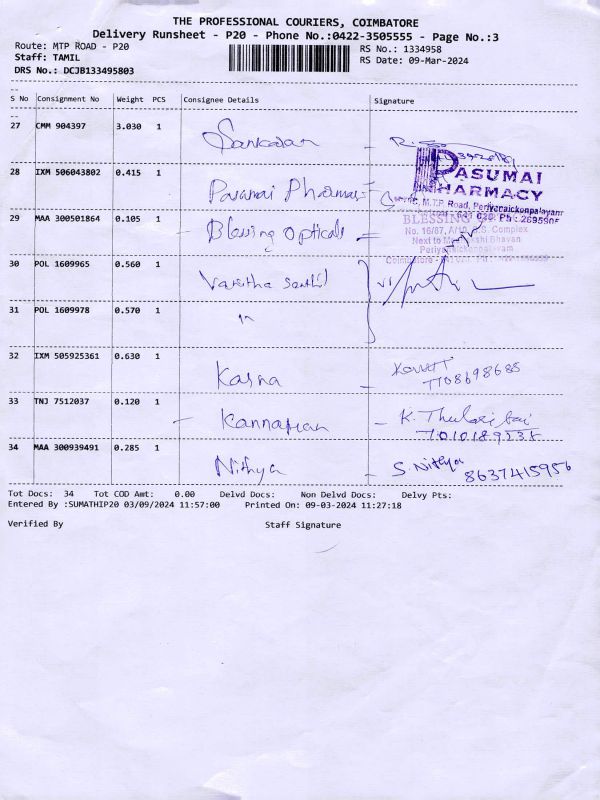 THE PROFESSIONAL COURIERS, COIMBATORE
Delivery Runsheet - P20 - Phone No.:0422-3505555 - Page No.:3
Route: MTP ROAD - P20 RS No.: 1334958
Staff: TAMIL RS Date: 09-Mar-2024
DRS No.: DCJB133495803
S No Consignment No Weight PCS Consignee Details Signature
27 CMM 904397 3.030 1 Sankaran
28 IXM 506043802 0.415 1 Pasumai Pharmacy PASUMAI PHARMACY
M.T.P. Road, Periyanaickenpalayam
29 MAA 300501864 0.105 1 Blessing Opticals BLESSING
No. 16/87, Complex
Next to Bhavan
Periyanaickenpalayam
30 POL 1609965 0.560 1
31 POL 1609978 0.570 1 "
32 IXM 505925361 0.630 1 Karna 7708698685
33 TNJ 7512037 0.120 1 K. Thulasi bai
34 MAA 300939491 0.285 1 Nithya S. Nithya
8637415956
Tot Docs: 34 Tot COD Amt: 0.00 Delvd Docs: Non Delvd Docs: Delvy Pts:
Entered By :SUMATHIP20 03/09/2024 11:57:00 Printed On: 09-03-2024 11:27:18
Verified By Staff Signature